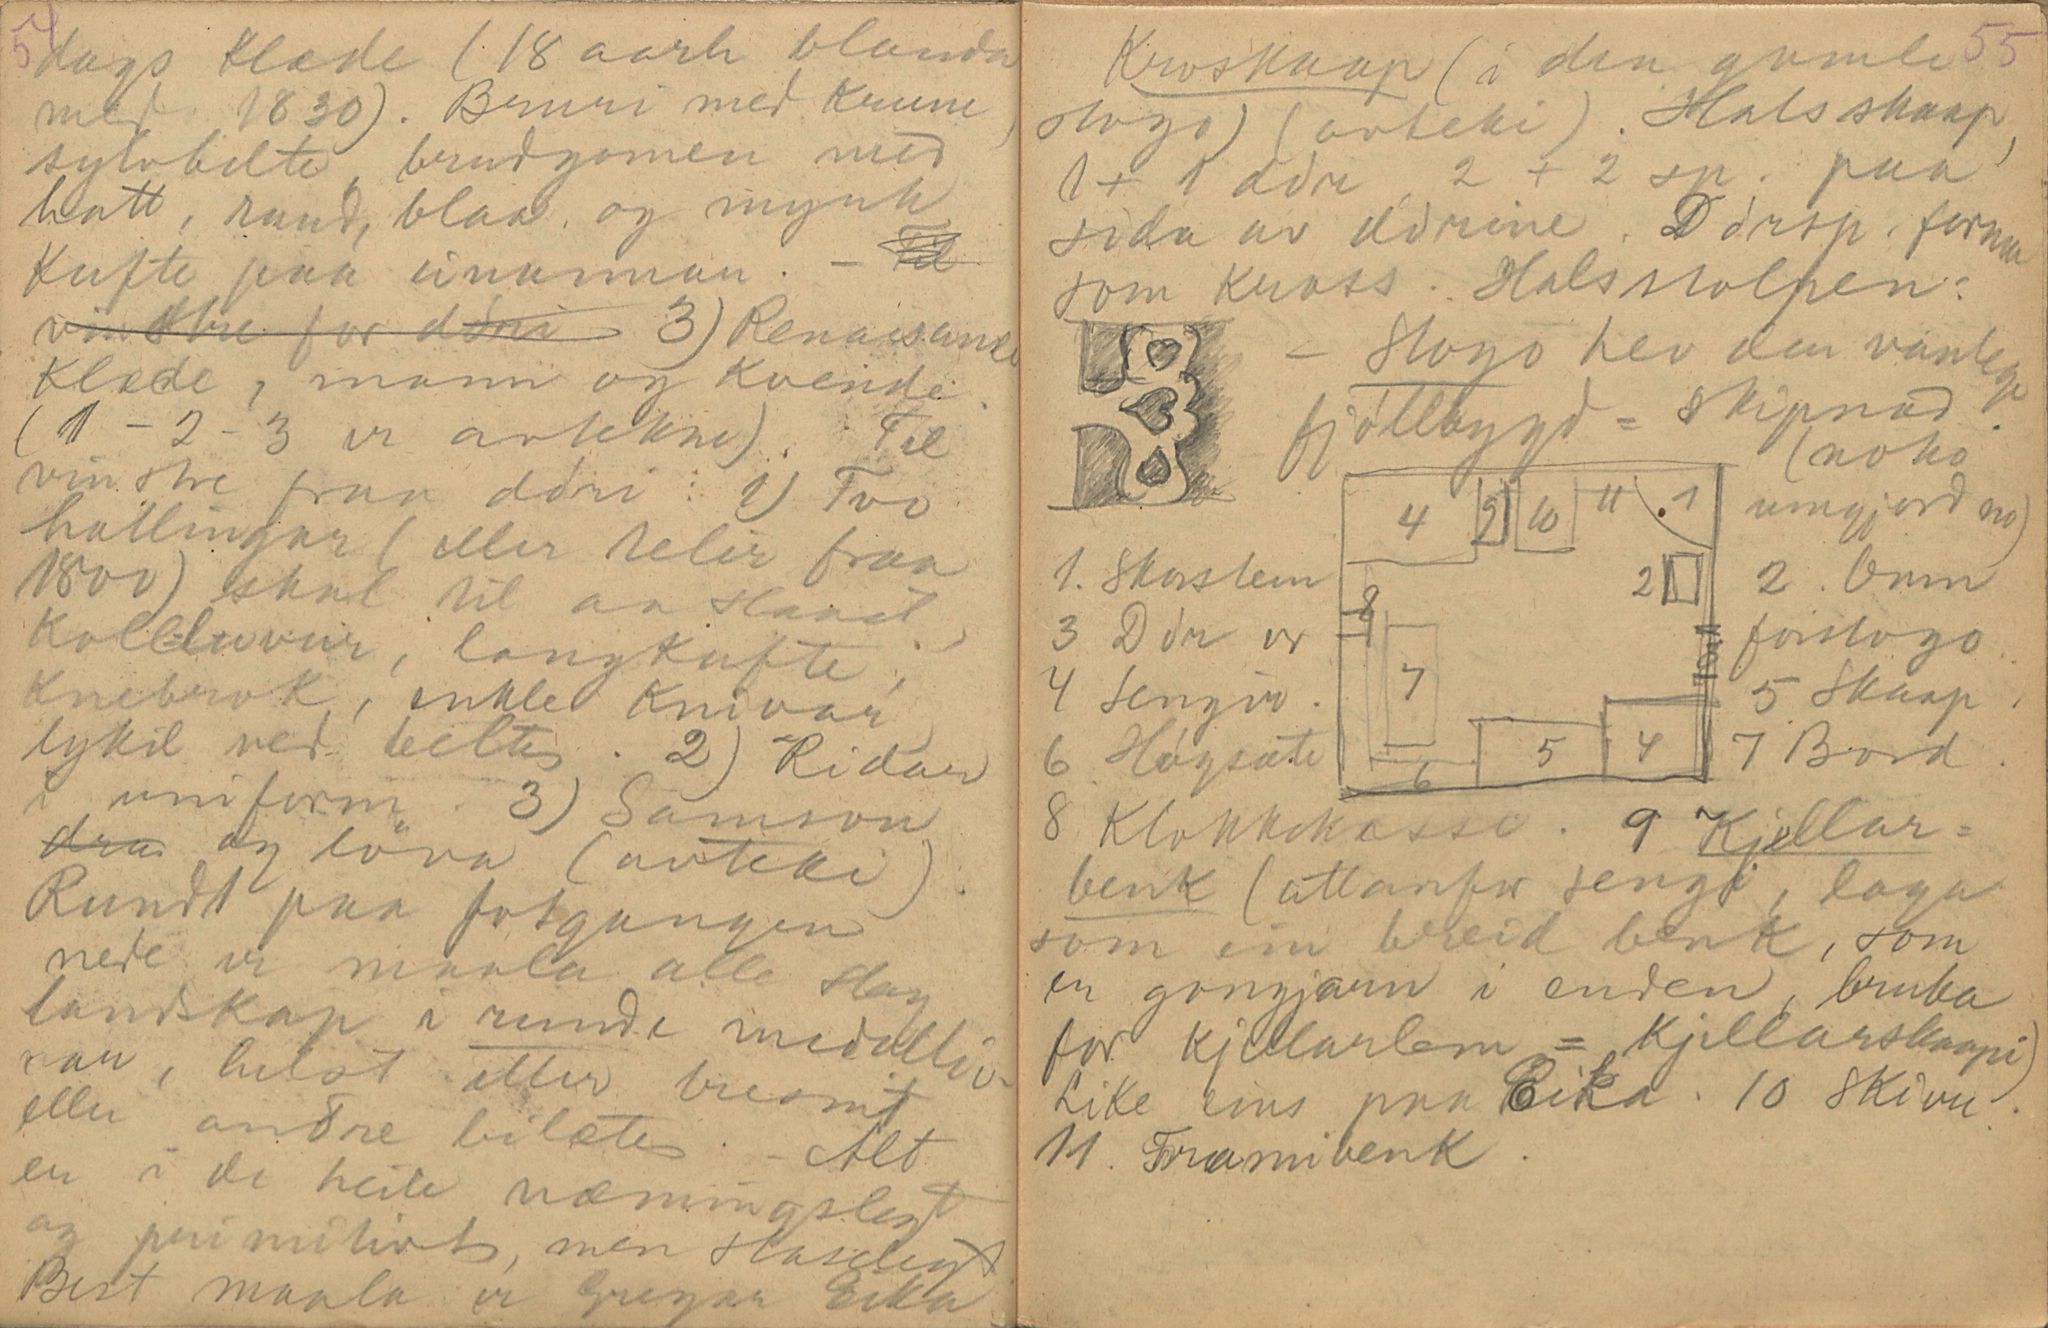 54
dags klæde (18 aarh blanda
med 1830). Bruri med krune,
sylvbelte, brudgomen med
hatt, raud, blaa og mynk
kufte paa einannan. - Til
vinstre for döri 3) Renaissance
klæde, mann og kvende.
(1 - 2 - 3 er avtekne). Til
vinstre fraa döri: 1) Tvo
hallingar (eller telir fraa
1800) skal til aa slaast,
kolleluvur, langkufte,
knebrok, enkle knivar
lykil ved beltes. 2) Ridar
i uniform. 3) Samson
dra og löva (avteki).
Rundt paa fotgangen
nede er maala alle slag
landskap i runde medaljo-
nar, helst etter
eller andre bilæte. - Alt
er i de heile næmingslegt
og primitivt, men staselegt
Best maala er Gregar Eika
55
Kroskaap (i den gamle
stogo) (avteki). Halsskaap,
1 + 1 dör, 2 + 2 sp. paa
sida av dörine. Dörsp. forma
som kross. Halsstolpen:
- Stogo hev den vanlege
fjöllbygd = skipnad.
(noko
umgjord no)
4 9 10 11 1
2
8
3
7
6 5 4
1. Skorstein 2. Omn
3 Dör er forstogo
4 Sengir. 5 Skaap.
6 Högsæte 7 Bord.
8 Klokkekasse. 9 Kjellar=
benk (attanfor sengi, laga
som ein breid benk, som
er gongjarn i enden, bruka
for kjellarlem = kjellarskaapi)
Like eins paa Eika. 10 Skive.
11. Framibenk.